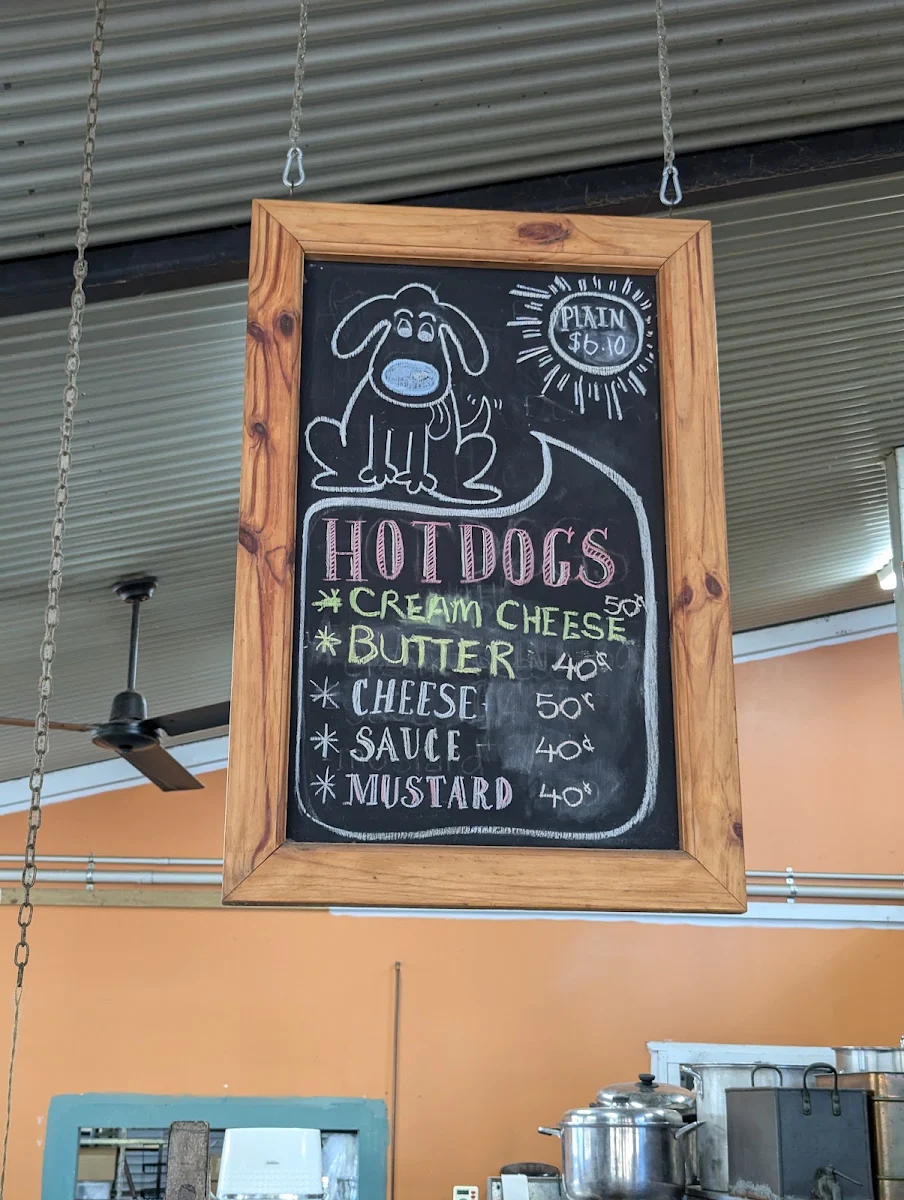 PLAIN
$6.10
HOTDOGS
* CREAM CHEESE 50¢
* BUTTER 40¢
* CHEESE 50¢
* SAUCE 40¢
* MUSTARD 40¢